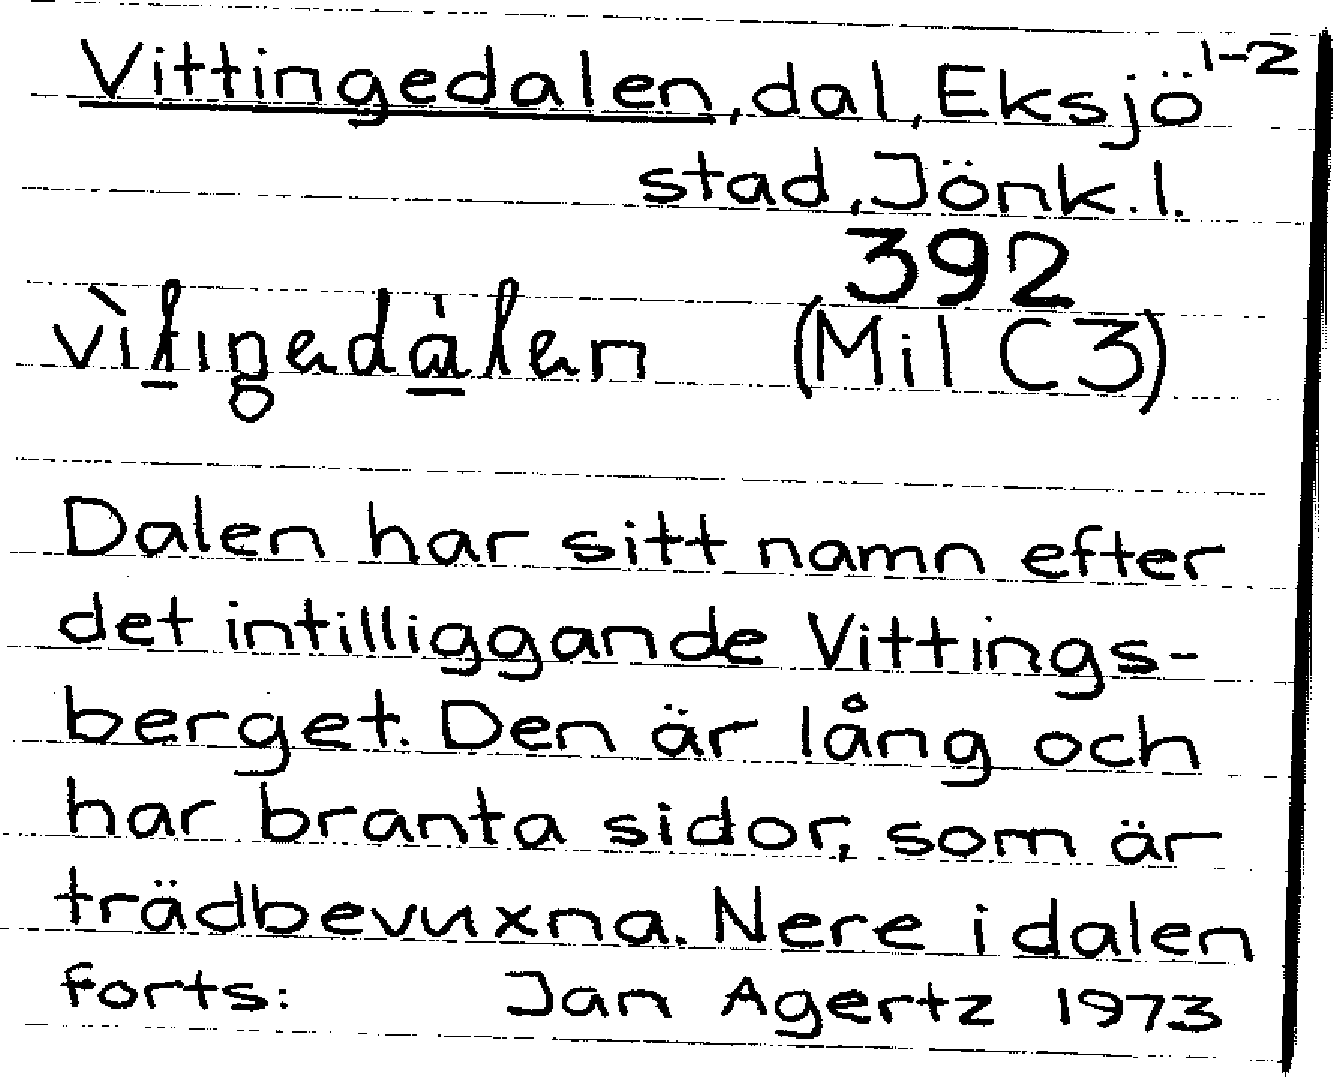 Vittingedalen, dal, Eksjö 1-2
stad, Jönk. l.
392
(Mil C3)
Dalen har sitt namn efter
det intilliggande Vittings-
berget. Den är lång och
har branta sidor, som är
trädbevuxna. Nere i dalen
forts: Jan Agertz 1973